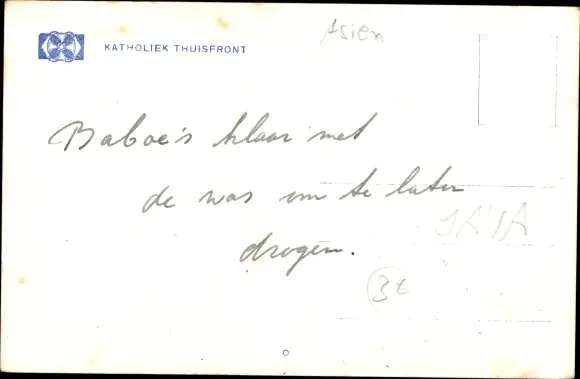 KATHOLIEK THUISFRONT
Asien
Baboe's klaar met
de was om te laten
drogen.
JAVA
3€